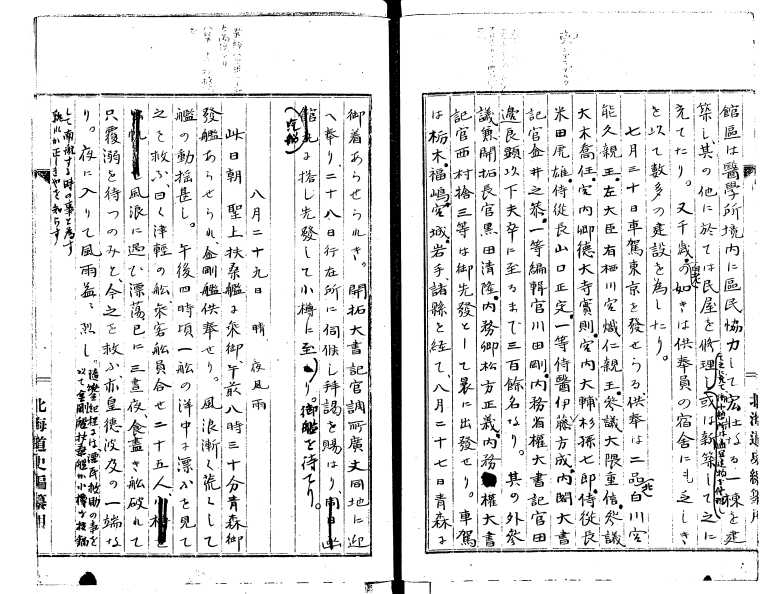 館區は醫學所境内に區民協力して宏壯なる一棟を建
築し其の他に於ては民屋を修理し或は新築して之に
充てたり。又千歳の如きは供奉員の宿舎にも乏しき
を以て數多の建設を為したり。
七月三十日車駕東京を發せらる供奉は二品北白川宮
能久親王、左大臣有栖川宮熾仁親王、參議大隈重信、參議
大木喬任、宮内卿徳大寺實則、宮内大輔杉孫七郎、侍從長
米田虎雄、侍從長山口正定、一等侍醫伊藤方成、内閣大書
記官金井之恭、一等編輯官川田剛、内務省權大書記官田
邊良顯以下夫卒に至るまで三百餘名なり。其の外參
議兼開拓長官黒田清隆、内務卿松方正義、内務權大書
記官西村捨三等は御先發として曩に出發せり。車駕
は栃木、福嶋、宮城、岩手、諸縣を經て、八月二十七日青森に
北海道史編纂用
御着あらせられき。開拓大書記官調所廣丈同地に迎
へ奉り二十八日行在所に伺候し拜謁を賜はり
に搭し先發して小樽に至り。御艦を待てり。
汽船
八月二十九日 晴 夜風雨
此日朝 聖上扶桑艦に乘御、午前八時三十分青森御
發艦あらせられ、金剛艦供奉せり。風浪漸く荒くして
艦の動揺甚し。午後四時頃一舩の洋中に漂ふを見て
之を救ふ、曰く津輕の舩、乘客舩員合せ二十五人、
風浪に遇ひ漂蕩已に三晝夜、食盡き舩破れて
只覆溺を待つのみと今之を救ふ亦皇德波及の一端な
り。夜に入りて風雨益々烈し。
以て金剛艦扶桑艦が小樽を拔錨
して南航する時の事と為す
孰れか正しきやを知らず
北海道史編纂用